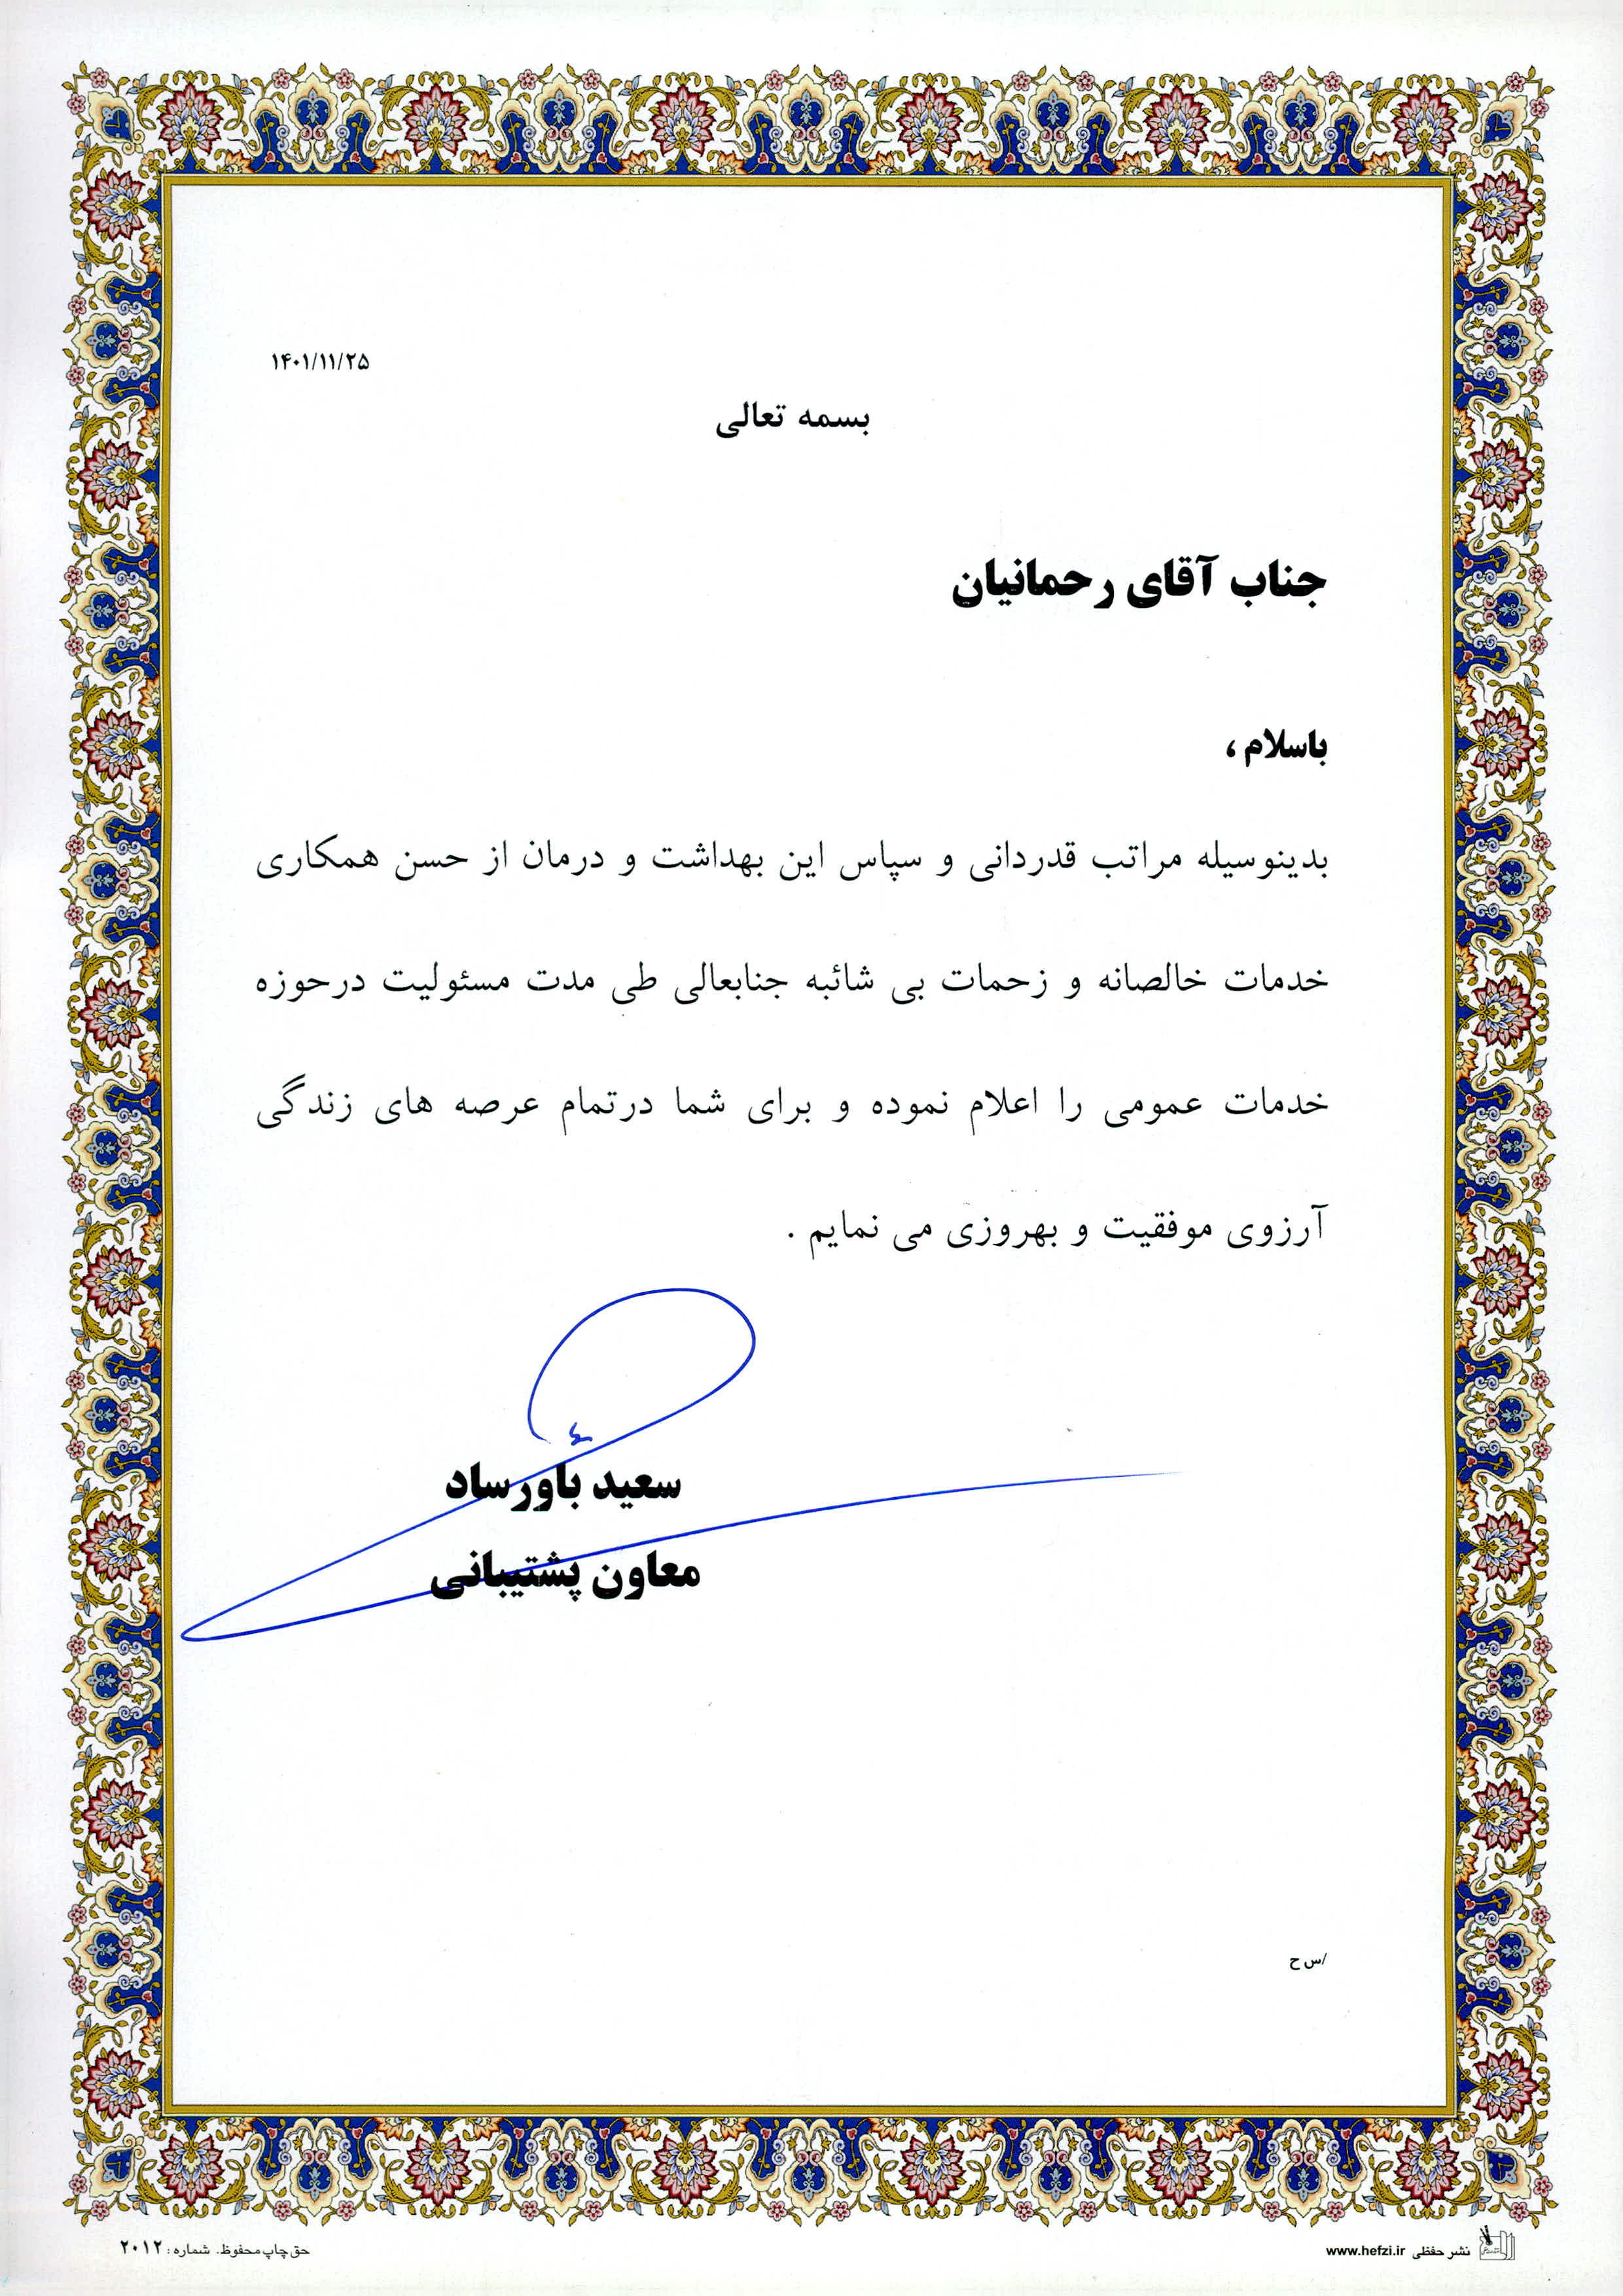 ۱۴۰۱/۱۱/۲۵
بسمه تعالی
جناب آقای رحمانیان
باسلام ،
بدینوسیله مراتب قدردانی و سپاس این بهداشت و درمان از حسن همکاری
خدمات خالصانه و زحمات بی شائبه جنابعالی طی مدت مسئولیت درحوزه
خدمات عمومی را اعلام نموده و برای شما درتمام عرصه های زندگی
آرزوی موفقیت و بهروزی می نمایم .
سعید باورساد
معاون پشتیبانی
/س ح
نشر حفظی www.hefzi.ir
حق چاپ محفوظ. شماره: ۲۰۱۲